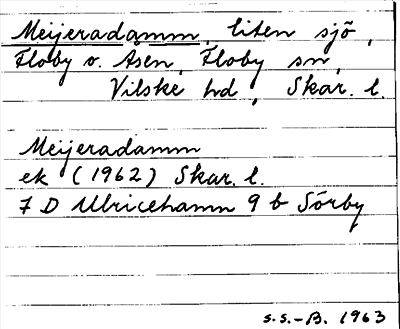 Meijeradamm, liten sjö,
Floby o. Åsen, Floby sn,
Vilske hd, Skar. l.
Meijeradamm
ek (1962) Skar. l.
7 D Ulricehamn 9 b Sörby
S.S.-B. 1963